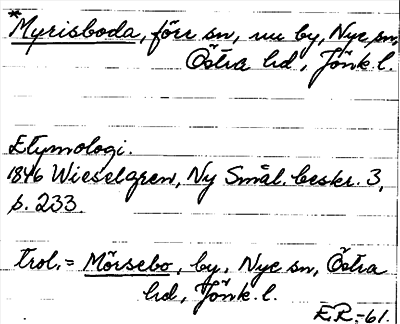 *Myrisboda, förr sn, nu by, Nye sn,
Östra hd, Jönk l.
Etymologi.
1846 Wieselgren, Ny Smål. beskr. 3,
p. 233.
trol. = Mörsebo, by, Nye sn, Östra
hd, Jönk. l.
E.R.-61.